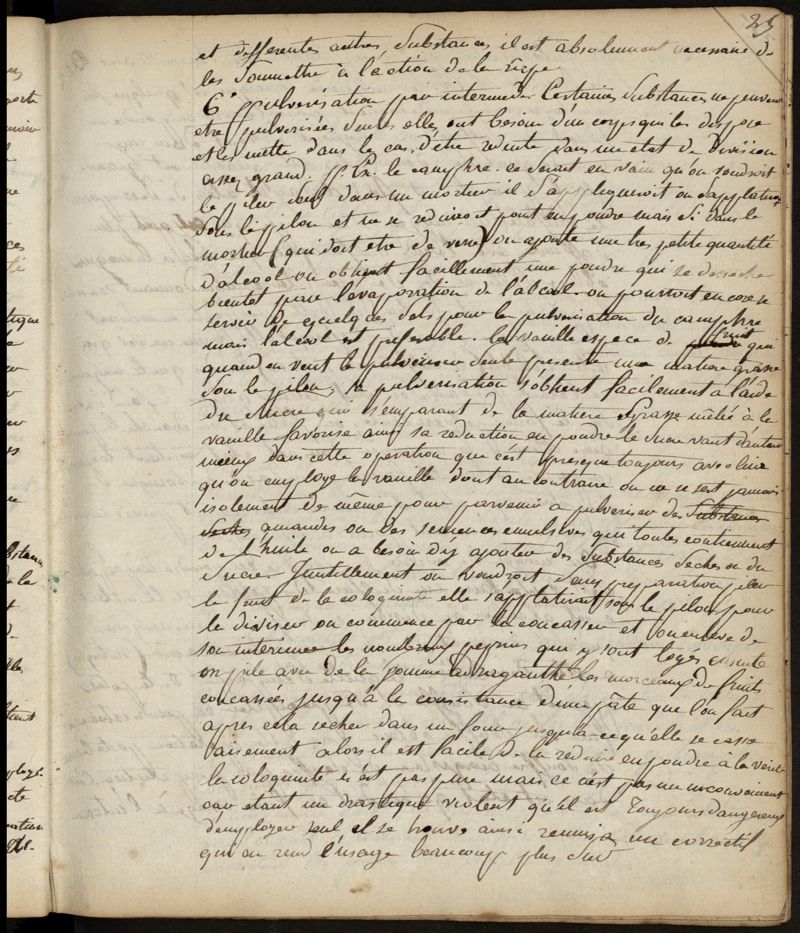 25
et differentes autres, Substances, il est absolument necessaire de
les Soumettre à l'action de la rape
6° Pulvérisation par intermede. Certaines Substances ne peuvent
etre pulverisées Seules elles ont besoin d'un corps qui les dispose
et les mette dans le cas d'être reduite dans un etat de division
assez grand. P. Ex. le camphre. ce Seroit en vain qu'on voudroit
le piler seul dans un mortier il S'appliqueroit ou s'applatiroit
Sous le pilon et ne se reduiroit point en poudre mais Si dans le
mortier (qui doit etre de verre) on ajoute une tres petite quantité
d'alcool on obtient facillement une poudre qui se desseche
bientot par l'evaporation de l'alcool. on pourroit encore se
servir de quelques Sels pour la pulverisation du camphre
mais l'alcool est preferable. la vanille espece de fruit qui
quand on veut le pulveriser Seule presente une matiere grasse
Sou le pilon, sa pulverisation s'obtient facilement a l'aide
du Sucre qui s'emparant de la matiere Grasse mêlée à la
vanille favorise ainsi sa reduction en poudre le Sucre vaut d'autant
mieux dans cette operation que c'est presque toujours avec lui
qu'on employe la vanille dont au contraire on ne se sert jamais
isolement de même pour parvenir a pulveriser des Substances
Seches amandes ou des semences emulsives qui toutes contiennent
de l'huile on a besoin d'y ajouter des Substances Seches ou du
Sucre Inutillement on voudroit Sans preparation piler
le fruit de la coloquinte elle s'applatiroit sous le pilon pour
le diviser on commence par la concasser et on enleve de
son interieur les nombreux pepins qui y sont logés ensuite
on pile avec de la gomme adragante les morceaux de fruits
concassés jusqu'à la consistance d'une pâte que l'on fait
apres cela secher dans un four jusqu'a ce qu'elle se casse
aisement alors il est facile de la reduire en poudre à la verité
la coloquinte n'est pas pure mais ce n'est pas un inconvenient
car etant un drastique violent qu'il est Toujours dangereux
d'employer seul il se trouve ainsi reunis a un correctif
qui en rend l'usage beaucoup plus Sur